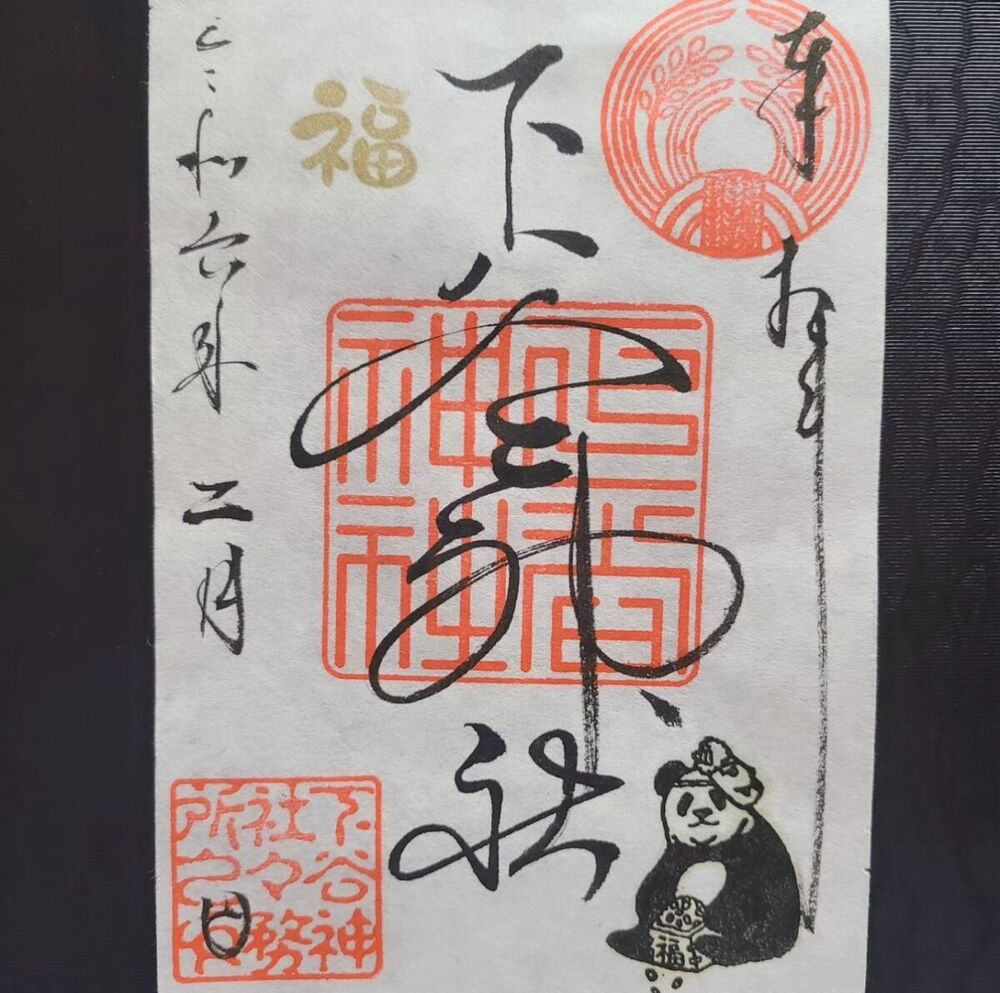 奉拝
下谷神社
下谷神社
福
令和六年二月 日
下谷神
社々務
所之印
福